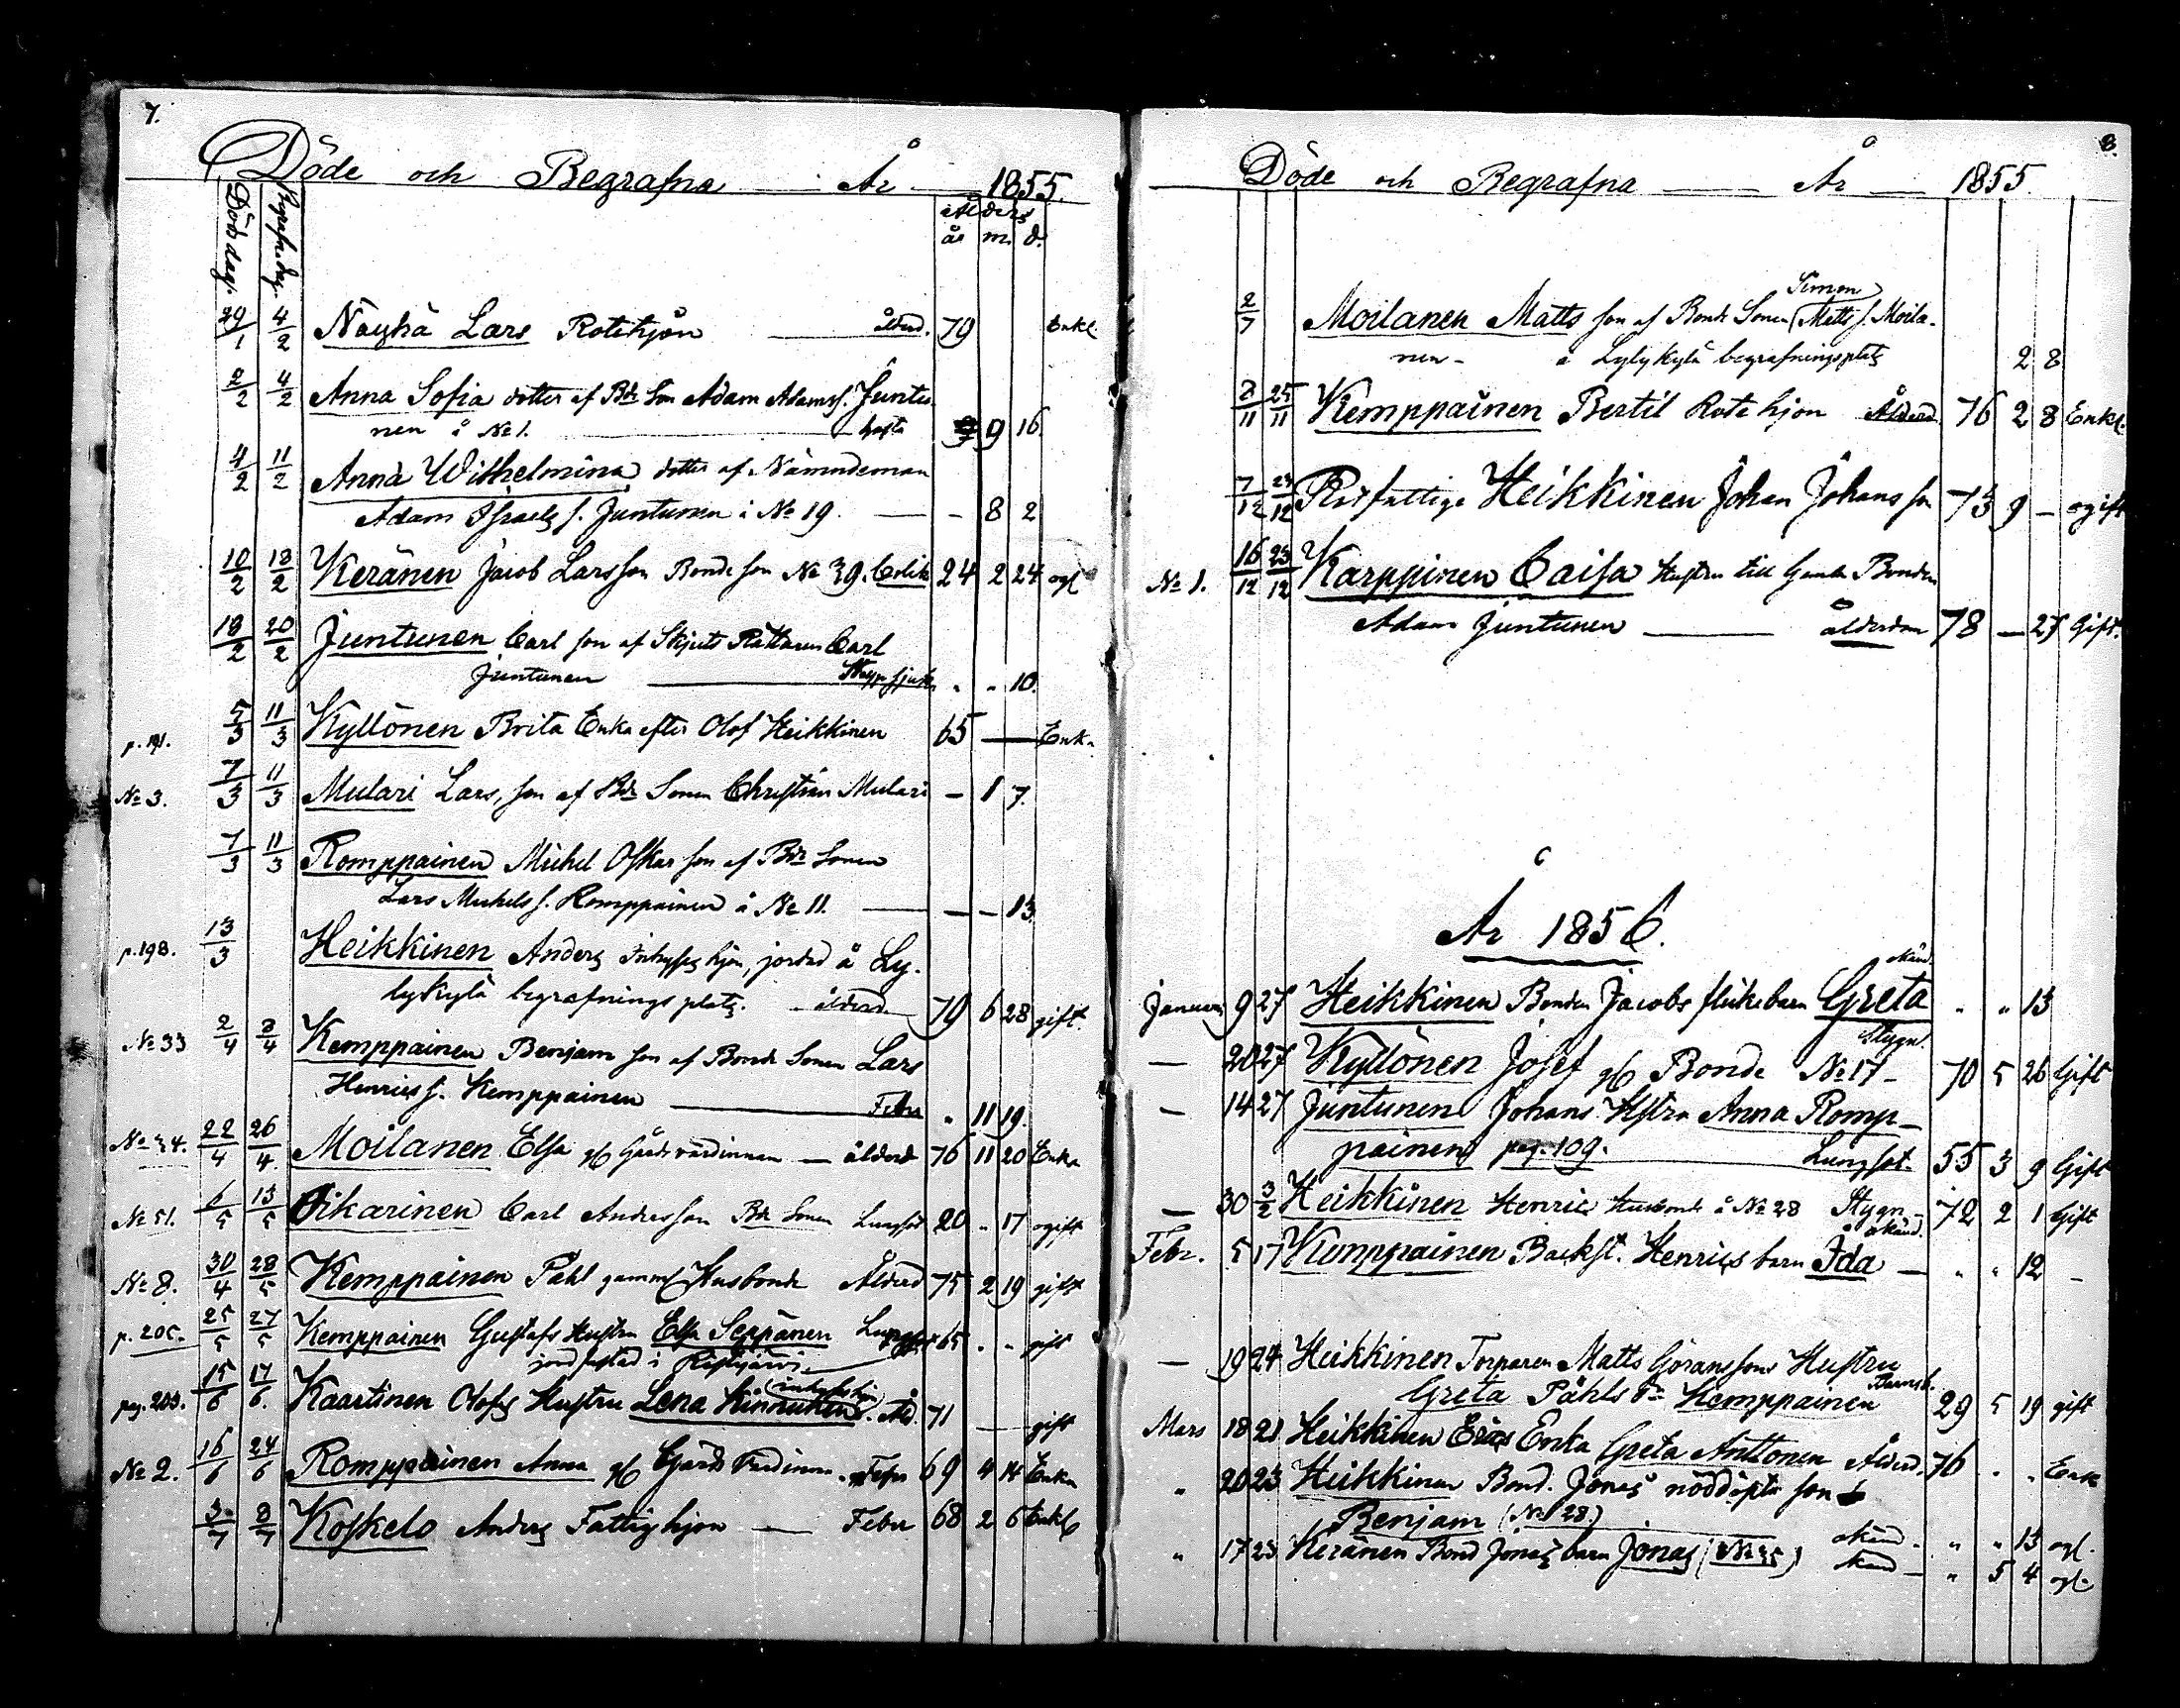 7.
Döde och Begrafna — År — 1855.
Döds dag. Begrafn.dag. Ålders
år m. d.
29/1 4/2 Näyhä Lars Rotehjon — ålderd. 79 Enkl.
2/2 4/2 Anna Sofia dotter af Bde Son Adam Adamss. Juntu-
nen å No 1. — hosta 9 16.
4/2 11/2 Anna Wilhelmina dotter af Nämndeman
Adam Israels s. Juntunen i No 19. — - 8 2
10/2 18/2 Keränen Jacob Larsson Bonde son No 39. Colik 24 2 24 ogf
18/2 20/2 Juntunen Carl son af Skjuts Rättaren Carl
Juntunen — " " 10.
p. 191. 5/3 11/3 Kyllönen Brita Enka efter Olof Heikkinen 65 — Enka
No 3. 7/3 11/3 Mulari Lars, son af Bde Sonen Christian Mulari — 1 7.
7/3 11/3 Romppainen Michel Oskar son af Bde Sonen
Lars Michels s. Romppainen å No 11. — — – 13.
p. 198. 13/3 Heikkinen Anders Inhyses hjon, jordad å Ly-
lykylä begrafnings plats. — ålderd. 79 6 28 gift.
No 33 2/4 8/4 Kemppainen Benjam son af Bonde Sonen Lars
Henrics s. Kemppainen — Feber " 11 19.
No 34. 22/4 26/4 Moilanen Elsa gl Gårdsvärdinnan — ålderd 76 11 20 Enka
No 51. 6/5 13/5 Oikarinen Carl Andersson Bde Sonen Lungsot 20 " 17 ogift
No 8. 30/4 28/5 Kemppainen Påhl gamml Husbonde Ålderd 75 2 19 gift
p. 205. 25/5 27/5 Kemppainen Gustafs Hustru Elsa Seppänen Lungsot 65 . . gift
jordfästad i Ristijärvi
pag. 203. 15/6 17/6 Kaartinen Olofs Hustru Lena Kinnunen Åld. 71 — gift
No 2. 16/6 24/6 Romppainen Anna gl Gårds Värdinna Feber 69 4 14 Enka
3/7 8/7 Koskelo Anders Fattighjon — Feber 68 2 6 Enkl
8.
Döde och Begrafna — År — 1855.
Simon
2/7 Moilanen Matts son af Bonde Sonen Matts s. Moila-
nen - å Lylykylä begrafningsplats 2 8
8/11 25/11 Kemppainen Bertil Rote hjon Ålderd. 76 2 8 Enkl.
7/12 23/12 Rotfattige Heikkinen Johan Johans son 73 9 – ogift
No 1. 16/12 23/12 Karppinen Caisa Hustru till Gamla Bonden
Adam Juntunen — ålderdom 78 — 27 Gift.
År 1856.
okänd.
Januari 9 27 Heikkinen Bonden Jacobs flickebarn Greta " " 13
Stygn.
— 20 27 Kyllönen Josef gl Bonde No 17 – 70 5 26 Gift
— 14 27 Juntunen Johans Hstru Anna Romp-
painen pag. 109. Lungsot. 55 3 9 Gift
— 30 3/2 Heikkinen Henric Husbonde å No 28 Stygn 72 2 1 Gift
okänd.
Febr. 5 17 Kemppainen Backst. Henrics barn Ida — " " 12 –
— 19 24 Heikkinen Torparen Matts Göranssons Hustru
Greta Påhls dr Kemppainen Barnsb. 29 5 19 gift
Mars 18 21 Heikkinen Erics Enka Greta Anttonen Ålderd. 76 " " Enka
" 20 23 Heikkinen Bond. Jonas nöddöpta son
Benjam (No 28.) okänd. " " 13 ogf.
" 17 23 Keränen Bond Jonas barn Jonas okänd — " 5 4 ogf.